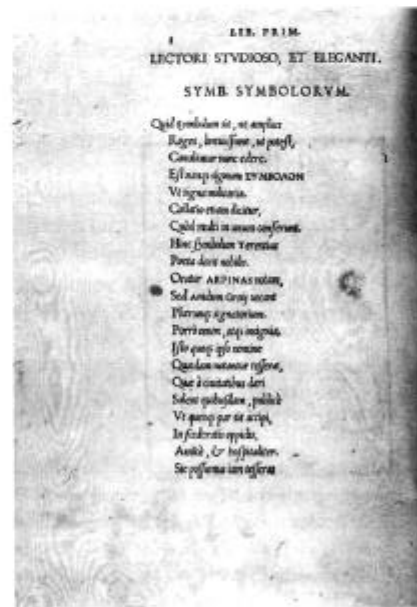 LIB. PRIM.
LECTORI STVDIOSO, ET ELEGANTI.
SYMB. SYMBOLORVM.
Quid symbolum sit, ut amplius
Roges, breuissime, ut potest,
Conabimur nunc edere.
Est namque signum ΣΥΜΒΟΛΟΝ
Vt signa militaria.
Collatio etiam dicitur,
Quod multi in unum conferunt.
Hinc symbolum Terentius
Poeta dixit nobilis.
Orator ARPINAS notam,
Sed Graeci uocant
Plerunque signatorium.
Porro omen, atque insignia,
Ipso quoque ipso nomine
Quaedam notantur tesserae,
Quae à ciuitatibus dari
Solent quibusdam, publicè
Vt quoque par sit accipi,
In foederatis oppidis,
Amicè, & hospitaliter.
Sic possumus iam tesseras